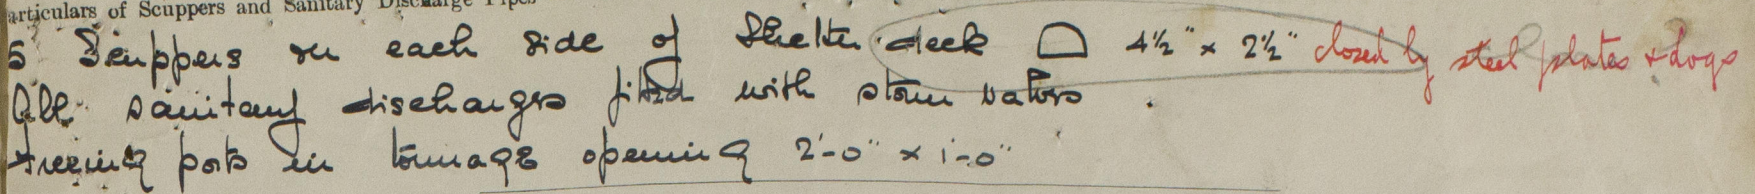 articulars of Scuppers and Sanitary Discharge Pipes
5 Scuppers on each side of Shelter deck 4½" x 2½" closed by steel plates & dogs
All sanitary discharges fitted with storm valves.
Freeing ports in tonnage opening 2'-0" x 1'-0"